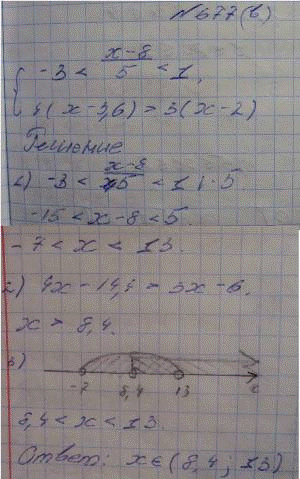 №677(в)
{ -3 < (x-8)/5 < 1,
4(x-3,6) > 3(x-2)
Решение
1) -3 < (x-8)/5 < 1 | · 5
-15 < x-8 < 5
-7 < x < 13.
2) 4x - 14,4 > 3x - 6,
x > 8,4.
3)
-7 8,4 13 x
8,4 < x < 13
Ответ: x∈(8,4; 13)